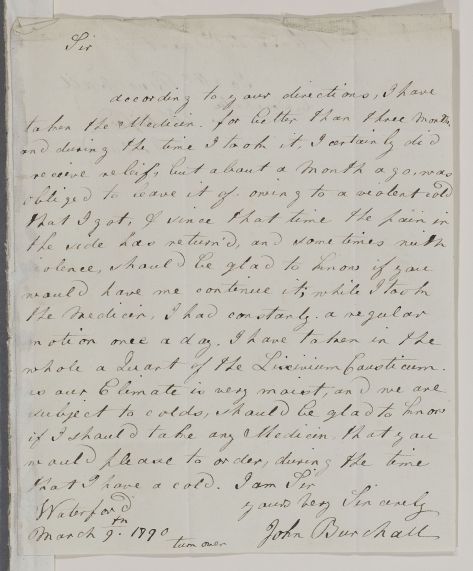 Sir
according to your directions, I have
taken the Medicin. for better than three months
and during the time I took it, I certainly did
receive relief, but about a month ago, was
obliged to leave it of. owing to a violent cold
that I got, & since that time the pain in
the side has return'd, and sometimes with
violence, should be glad to know if you
would have me continue it; while I took
the Medicin, I had constantly. a regular
motion once a day. I have taken in the
whole a Quart of the Lixivium Causticum.
as our Climate is very moist, and we are
subject to colds, should be glad to know
if I should take any Medicin that you
would please to order, during the time
that I have a cold. I am Sir
Waterford yours very Sincerely
March 9th. 1790
John Burchall
turn over